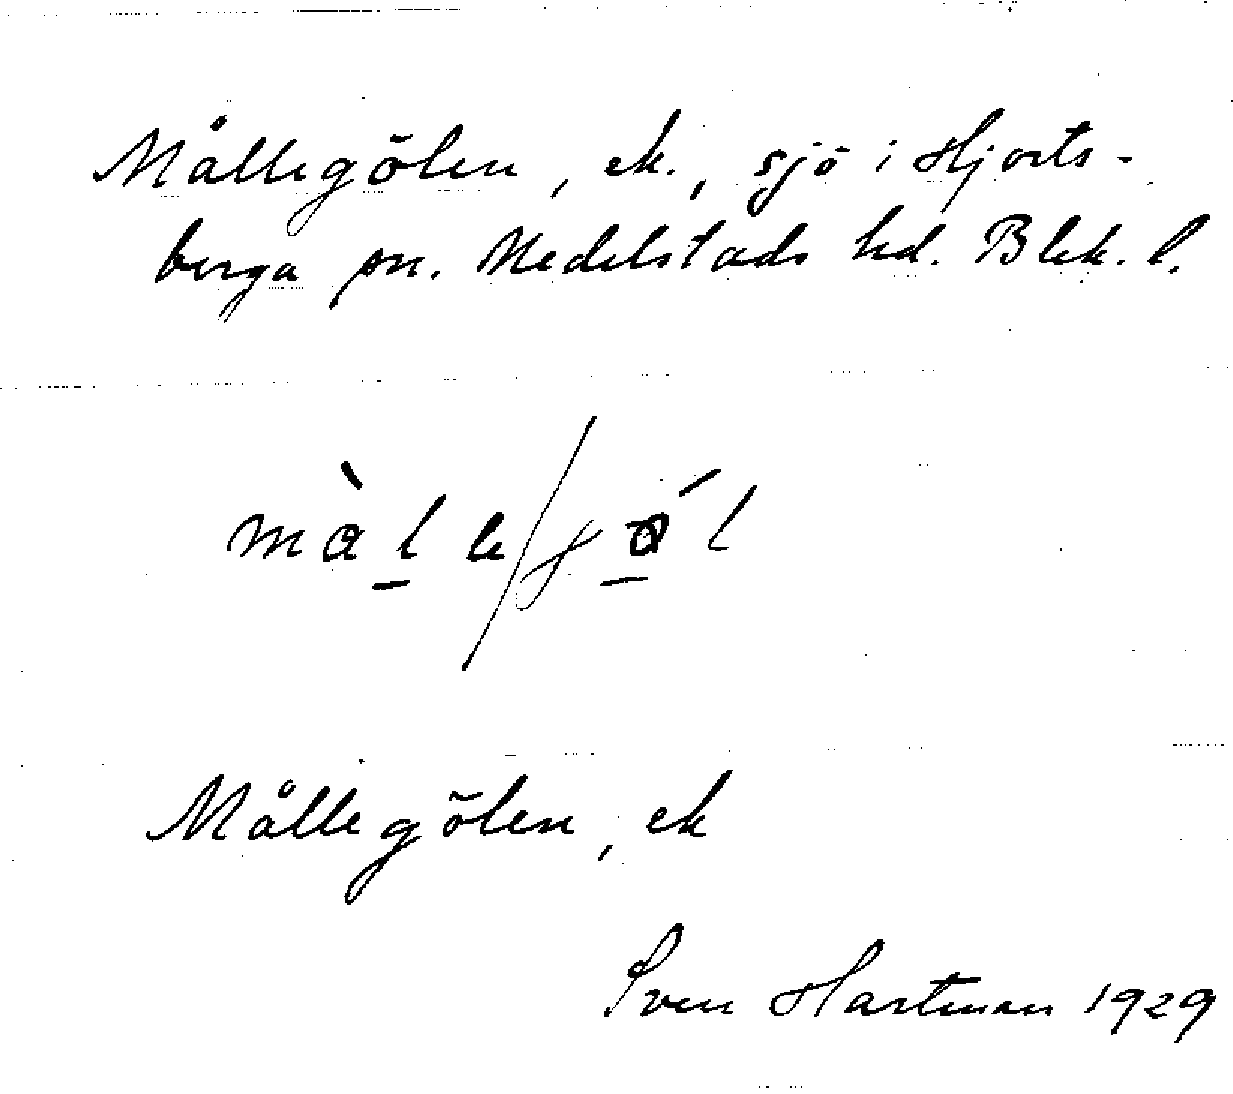 Mållegölen, ek., sjö i Hjorts-
berga sn. Medelstads hd. Blek. l.
màl le/gǿl
Mållegölen, ek
Sven Hartman 1929